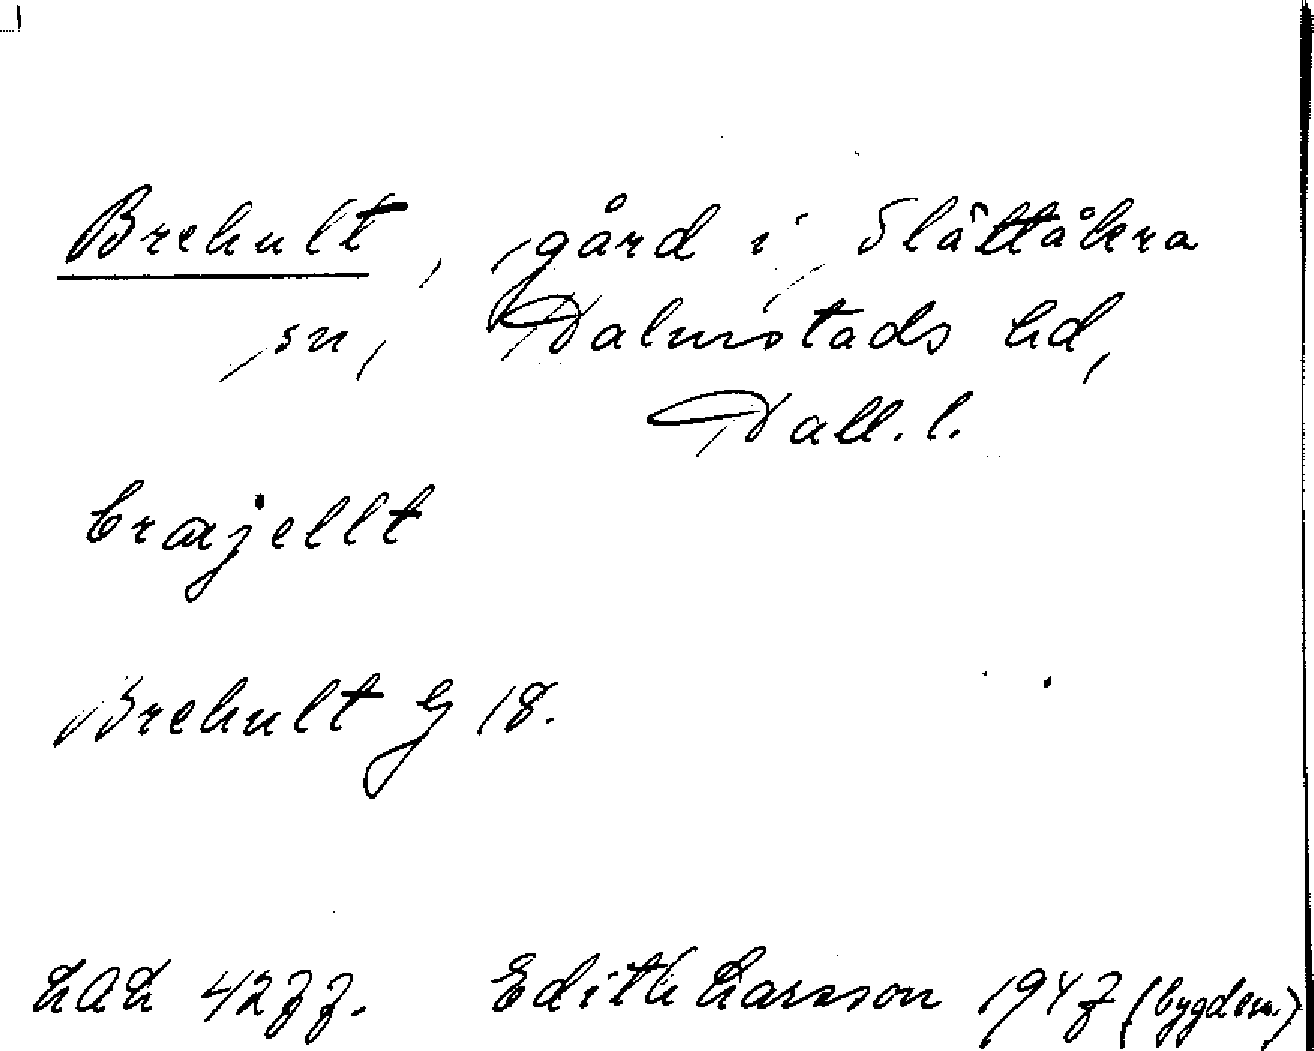 Brehult, gård i Slättåkra
sn, Halmstads hd,
Hall. l.
bræjellt
Brehult G 18.
LAL 4277. Edith Larsson 1947 (bygdem.)